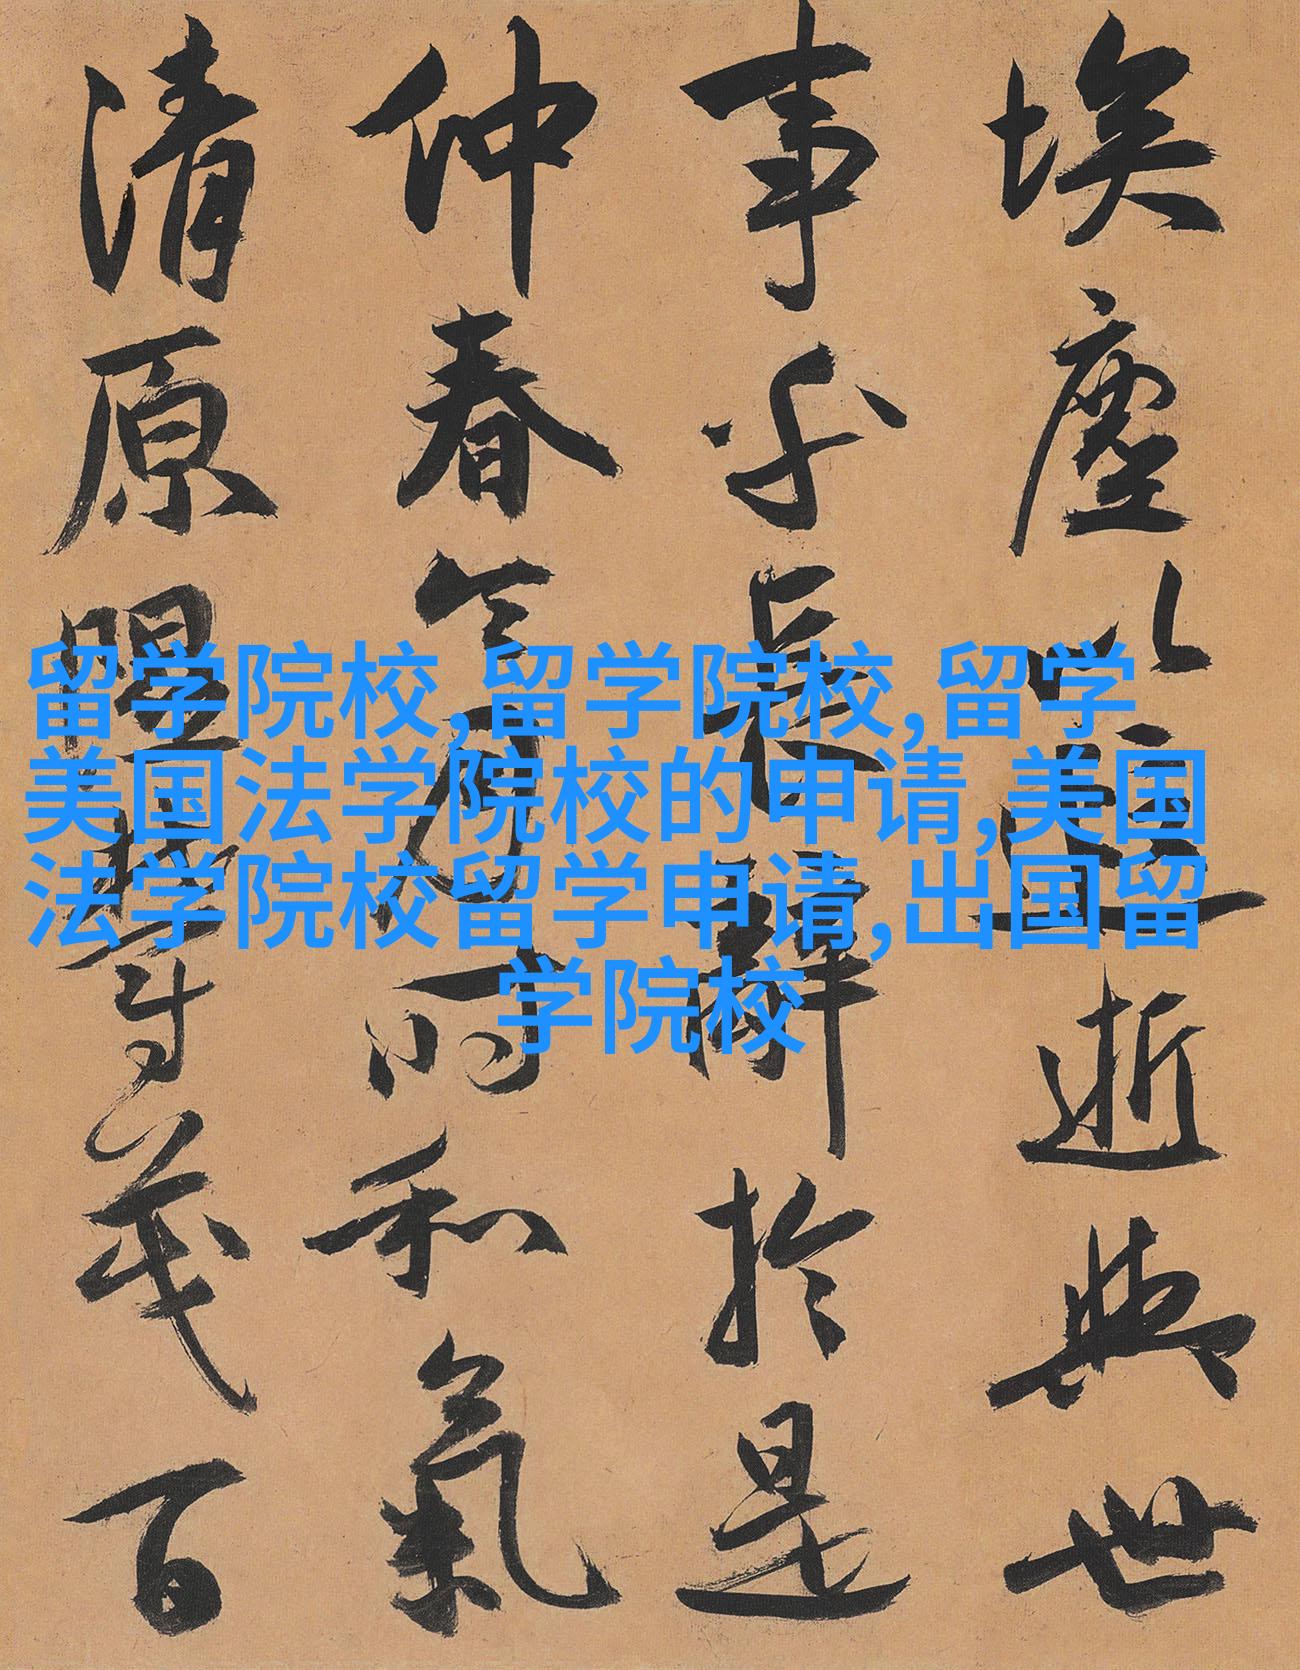 埃塵以遐逝與世
事乎長辭於是
仲春令月時和氣
清原隰鬱茂百
留学院校,留学院校,留学
美国法学院校的申请,美国
法学院校留学申请,出国留
学院校